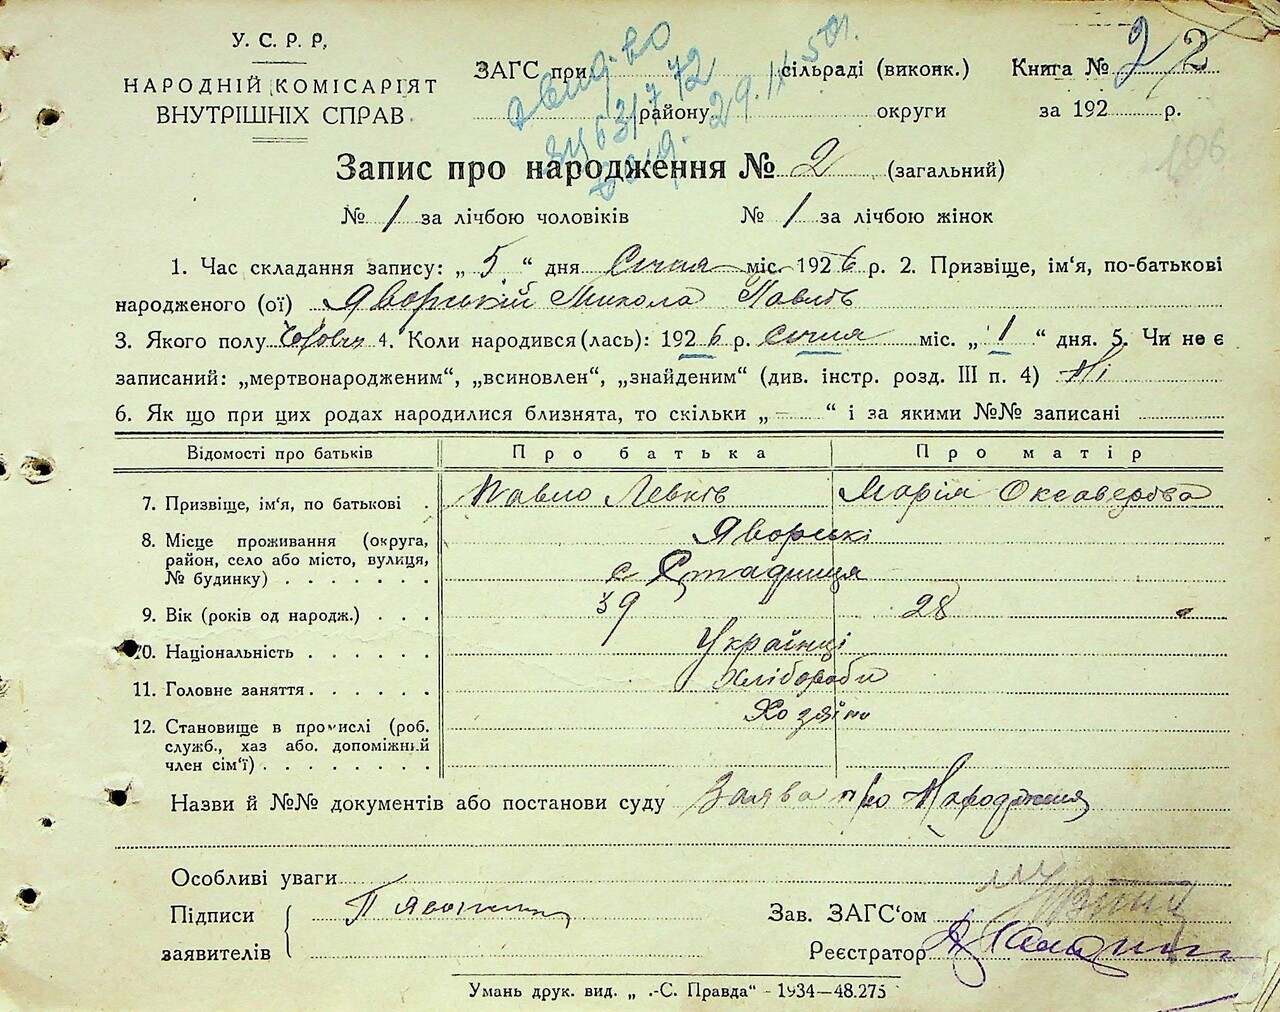 У. С. Р. Р,
НАРОДНІЙ КОМІСАРІЯТ
ВНУТРІШНІХ СПРАВ
ЗАГС при сільраді (виконк.) Книга № 2 2
району округи за 192 р.
свид-во
ЗЦ 631772
29.IX.50г.
106
Запис про народження № 2 (загальний)
№ 1 за лічбою чоловіків № 1 за лічбою жінок
1. Час складання запису: „ 5 “ дня Січня міс. 1926 р. 2. Призвіще, ім'я, по-батькові
народженого (ої) Яворський Микола Павлів
3. Якого полу 4. Коли народився(лась): 1926 р. січня міс. „ 1 “ дня. 5. Чи не є
записаний: „мертвонародженим“, „всиновлен“, „знайденим“ (див. інстр. розд. III п. 4) Ні
6. Як що при цих родах народилися близнята, то скільки „ – “ і за якими №№ записані
Відомості про батьків Про батька Про матір
7. Призвіще, ім'я, по батькові . Павло Левків Марія Оксаверова
Яворські
8. Місце проживання (округа,
район, село або місто, вулиця, с Стадниця
№ будинку) . . . . . . .
9. Вік (років од народж.) . . . 39 28
10. Національність . . . . . . Українці
11. Головне заняття . . . . . . Хлібороби
12. Становище в промислі (роб. Хозяїни
служб., хаз або. допоміжний
член сім'ї) . . . . . . . .
Назви й №№ документів або постанови суду Заява про Народження
Особливі уваги
Підписи
заявителів
Зав. ЗАГС'ом
Реєстратор
Умань друк. вид. „ .-С. Правда“ - 1934—48.275